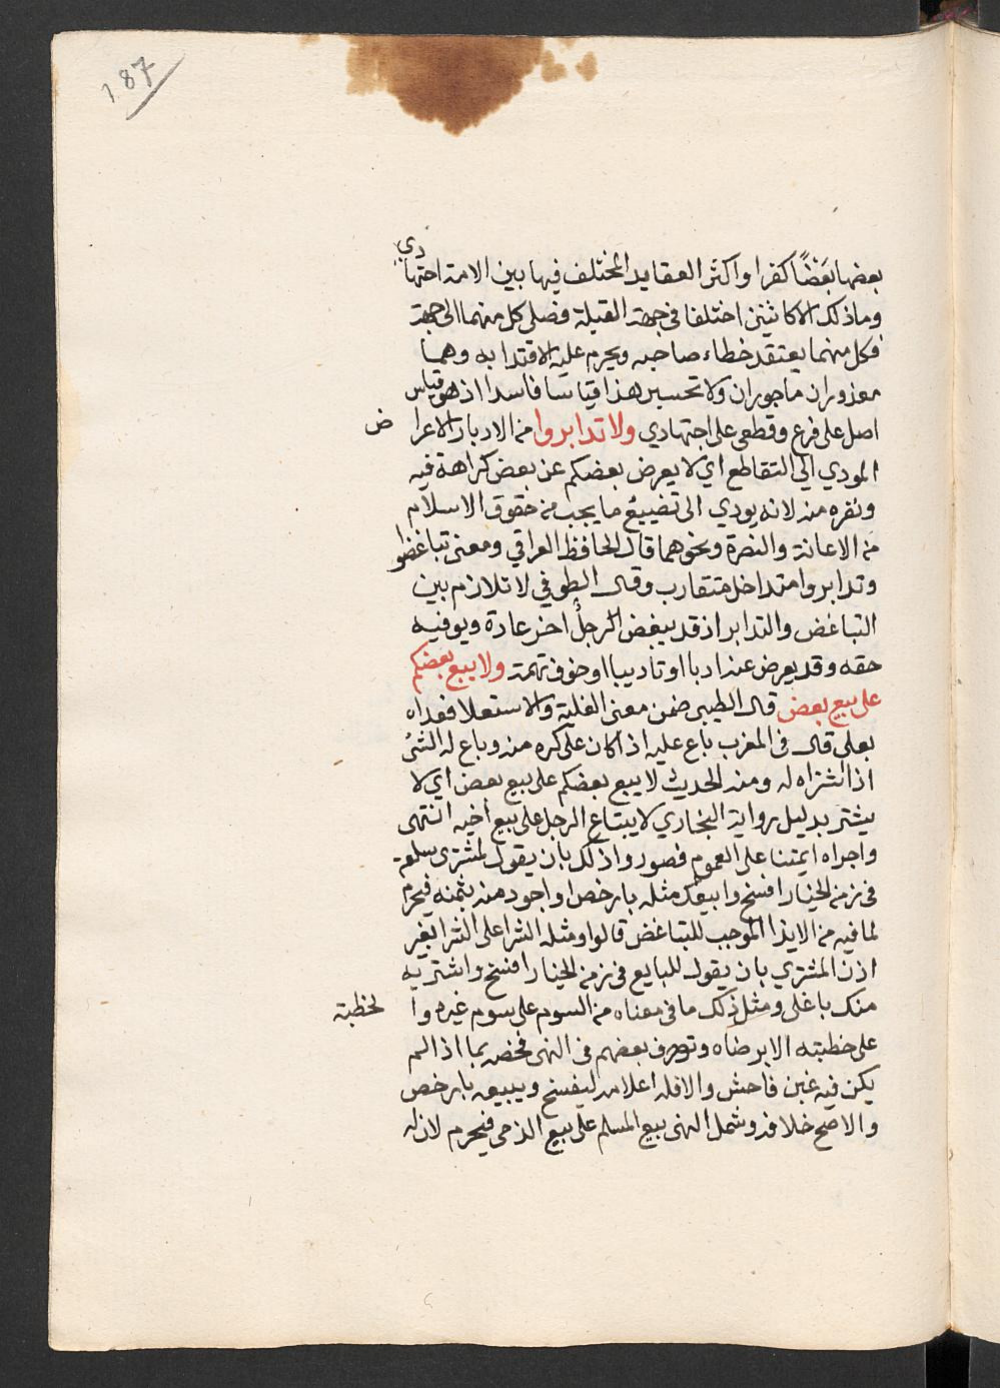 187
بعضها بعضًا كفرا واكثر العقايد المختلف فيها بين الامة اجتهادي
وما ذلك الا كاثنين اختلفا في جهة القبلة فصلى كل منهما الى جهة
فكل منهما يعتقد خطاء صاحبه ويحرم عليه الاقتدا به وهما
معذوران ماجوران ولا تحسبن هذا قياسا فاسدا اذ هو قياس
اصل على فرع وقطعي على اجتهادي ولا تدابروا من الادبار الاعراض
المودي الي التقاطع اي لا يعرض بعضكم عن بعض كراهة فيه
ونفره منه لانه يودي الى تضييع ما يجب من حقوق الاسلام
من الاعانة والنصرة ونحوهما قال الحافظ العراقي ومعنى تباغضوا
وتدابروا متداخل متقارب وقال الطوفي لا تلازم بين
التباغض والتدابر اذ قد يبغض الرجل اخر عادة ويوفيه
حقه وقد يعرض عنه ادبا او تاديبا او خوف تهمة ولا يبع بعضكم
على بيع بعض قال الطيبي ضمن معنى الغلبة والاستعلا فعداه
بعلى قال في المغرب باع عليه اذا كان على كره منه وباع له الشئ
اذا اشتراه له ومنه الحديث لا يبع بعضكم على بيع بعض اي لا
يشتر بدليل رواية البخاري لا يبتاع الرجل على بيع أخيه انتهى
واجراه ايمتنا على العموم فصوروا ذلك بان يقول لمشتري سلعة
في زمن الخيار افسخ وابيعك مثله بارخص او اجود منه بثمنه فيحرم
لما فيه من الايذا الموجب للتباغض قالوا ومثله الشرا على الشرا بغير
اذن المشتري بان يقول للبايع في زمن الخيار افسخ واشتريه
منك باغلى ومثل ذلك ما في معناه من السوم على سوم غيره والخطبة
على خطبته الا برضاه وتصرف بعضهم في النهي فخصه بما اذا لم
يكن فيه غبن فاحش والا فله اعلامه ليفسخ ويبيعه بارخص
والاصح خلافه وشمل النهي بيع المسلم على بيع الذمي فيحرم لان له